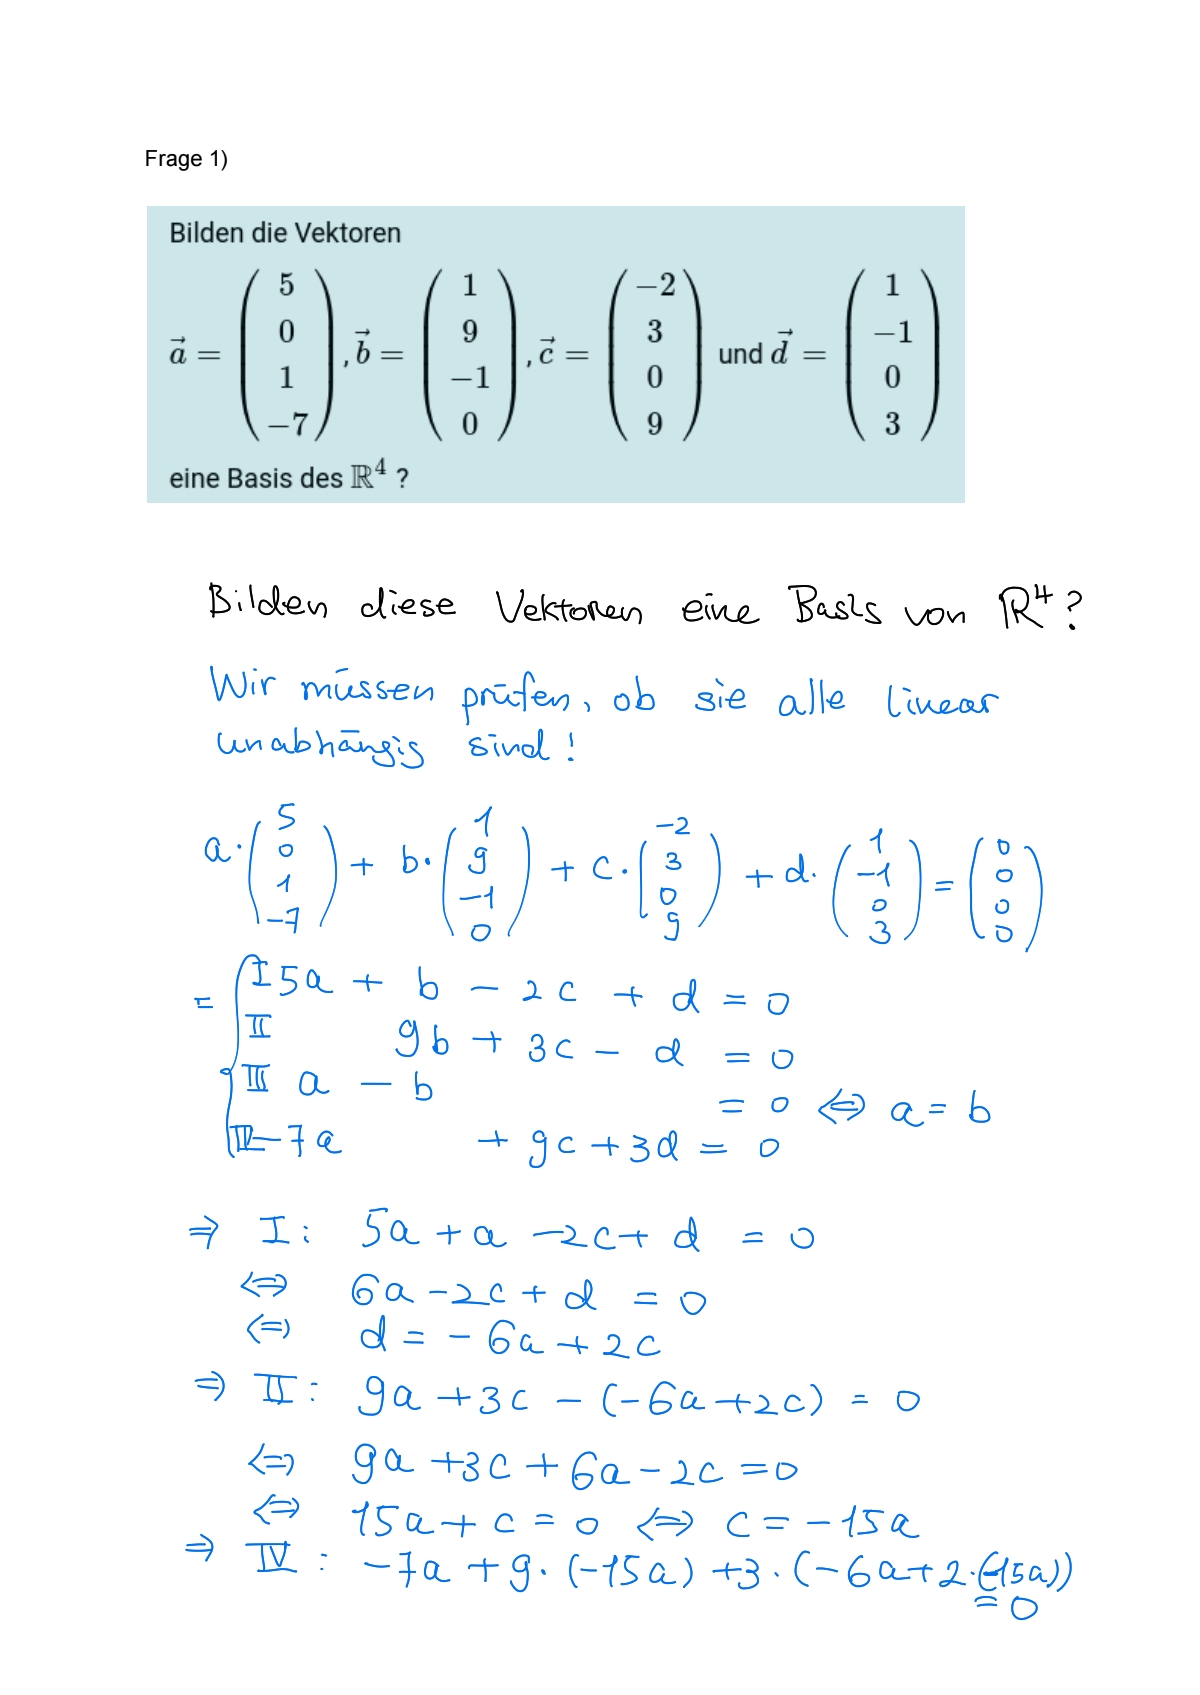 Frage 1)
Bilden die Vektoren
a⃗ = (5 0 1 −7), b⃗ = (1 9 −1 0), c⃗ = (−2 3 0 9) und d⃗ = (1 −1 0 3)
eine Basis des ℝ⁴ ?
Bilden diese Vektoren eine Basis von ℝ⁴?
Wir müssen prüfen, ob sie alle linear
unabhängig sind!
a·(5 0 1 −7) + b·(1 9 −1 0) + c·(−2 3 0 9) + d·(1 −1 0 3) = (0 0 0 0)
= I 5a + b − 2c + d = 0
II 9b + 3c − d = 0
III a − b = 0 ⇔ a = b
IV −7a + 9c + 3d = 0
⇒ I: 5a + a − 2c + d = 0
⇔ 6a − 2c + d = 0
⇔ d = −6a + 2c
⇒ II: 9a + 3c − (−6a + 2c) = 0
⇔ 9a + 3c + 6a − 2c = 0
⇔ 15a + c = 0 ⇔ c = −15a
⇒ IV: −7a + 9·(−15a) + 3·(−6a + 2·(−15a))
= 0